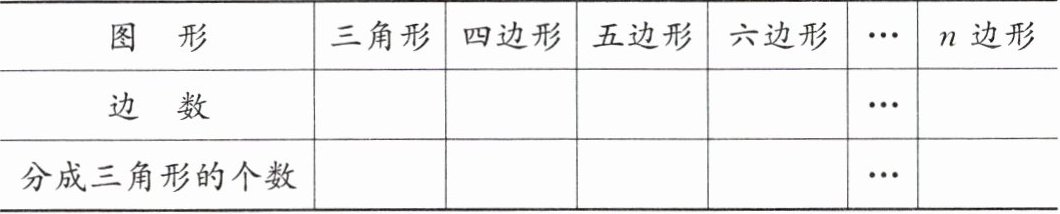 图 形 三角形 四边形 五边形 六边形 … n 边形
边 数 …
分成三角形的个数 …